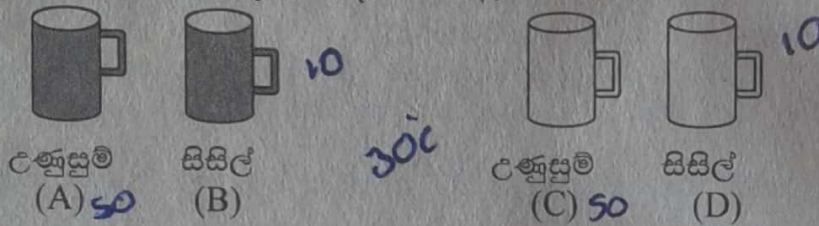 10 10
30°C
උණුසුම් සිසිල් උණුසුම් සිසිල්
(A) 50 (B) (C) 50 (D)